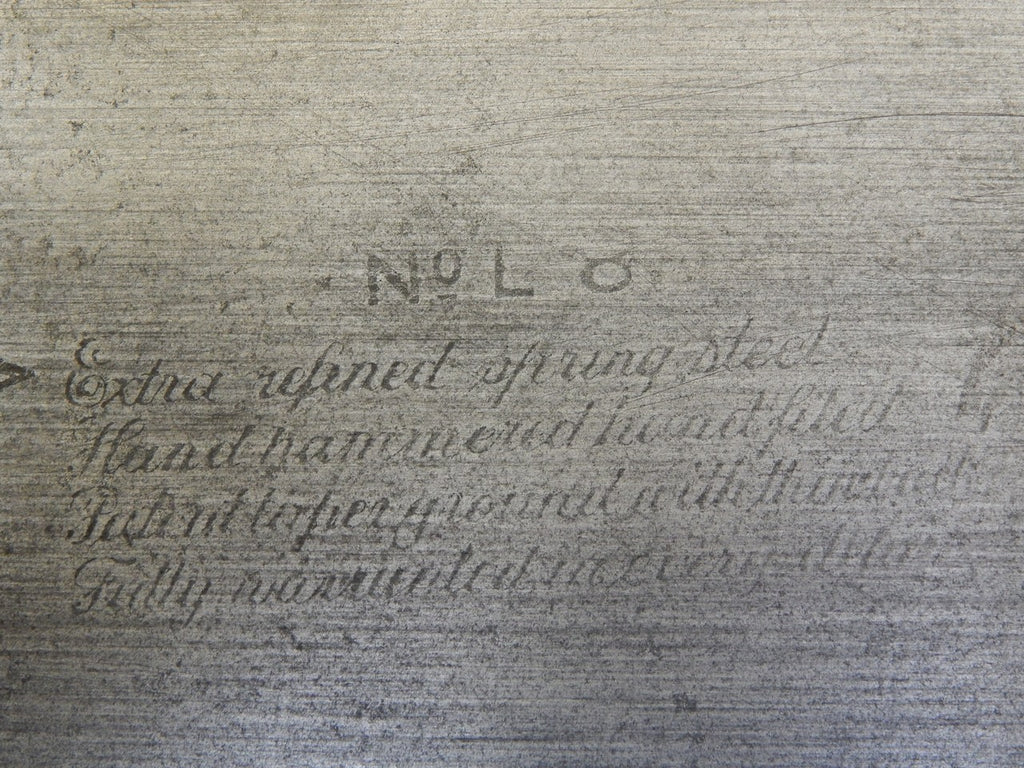 No L 8
Extra refined spring steel
Hand hammered hand filed
Patent taper ground with thin back
Fully warranted in every